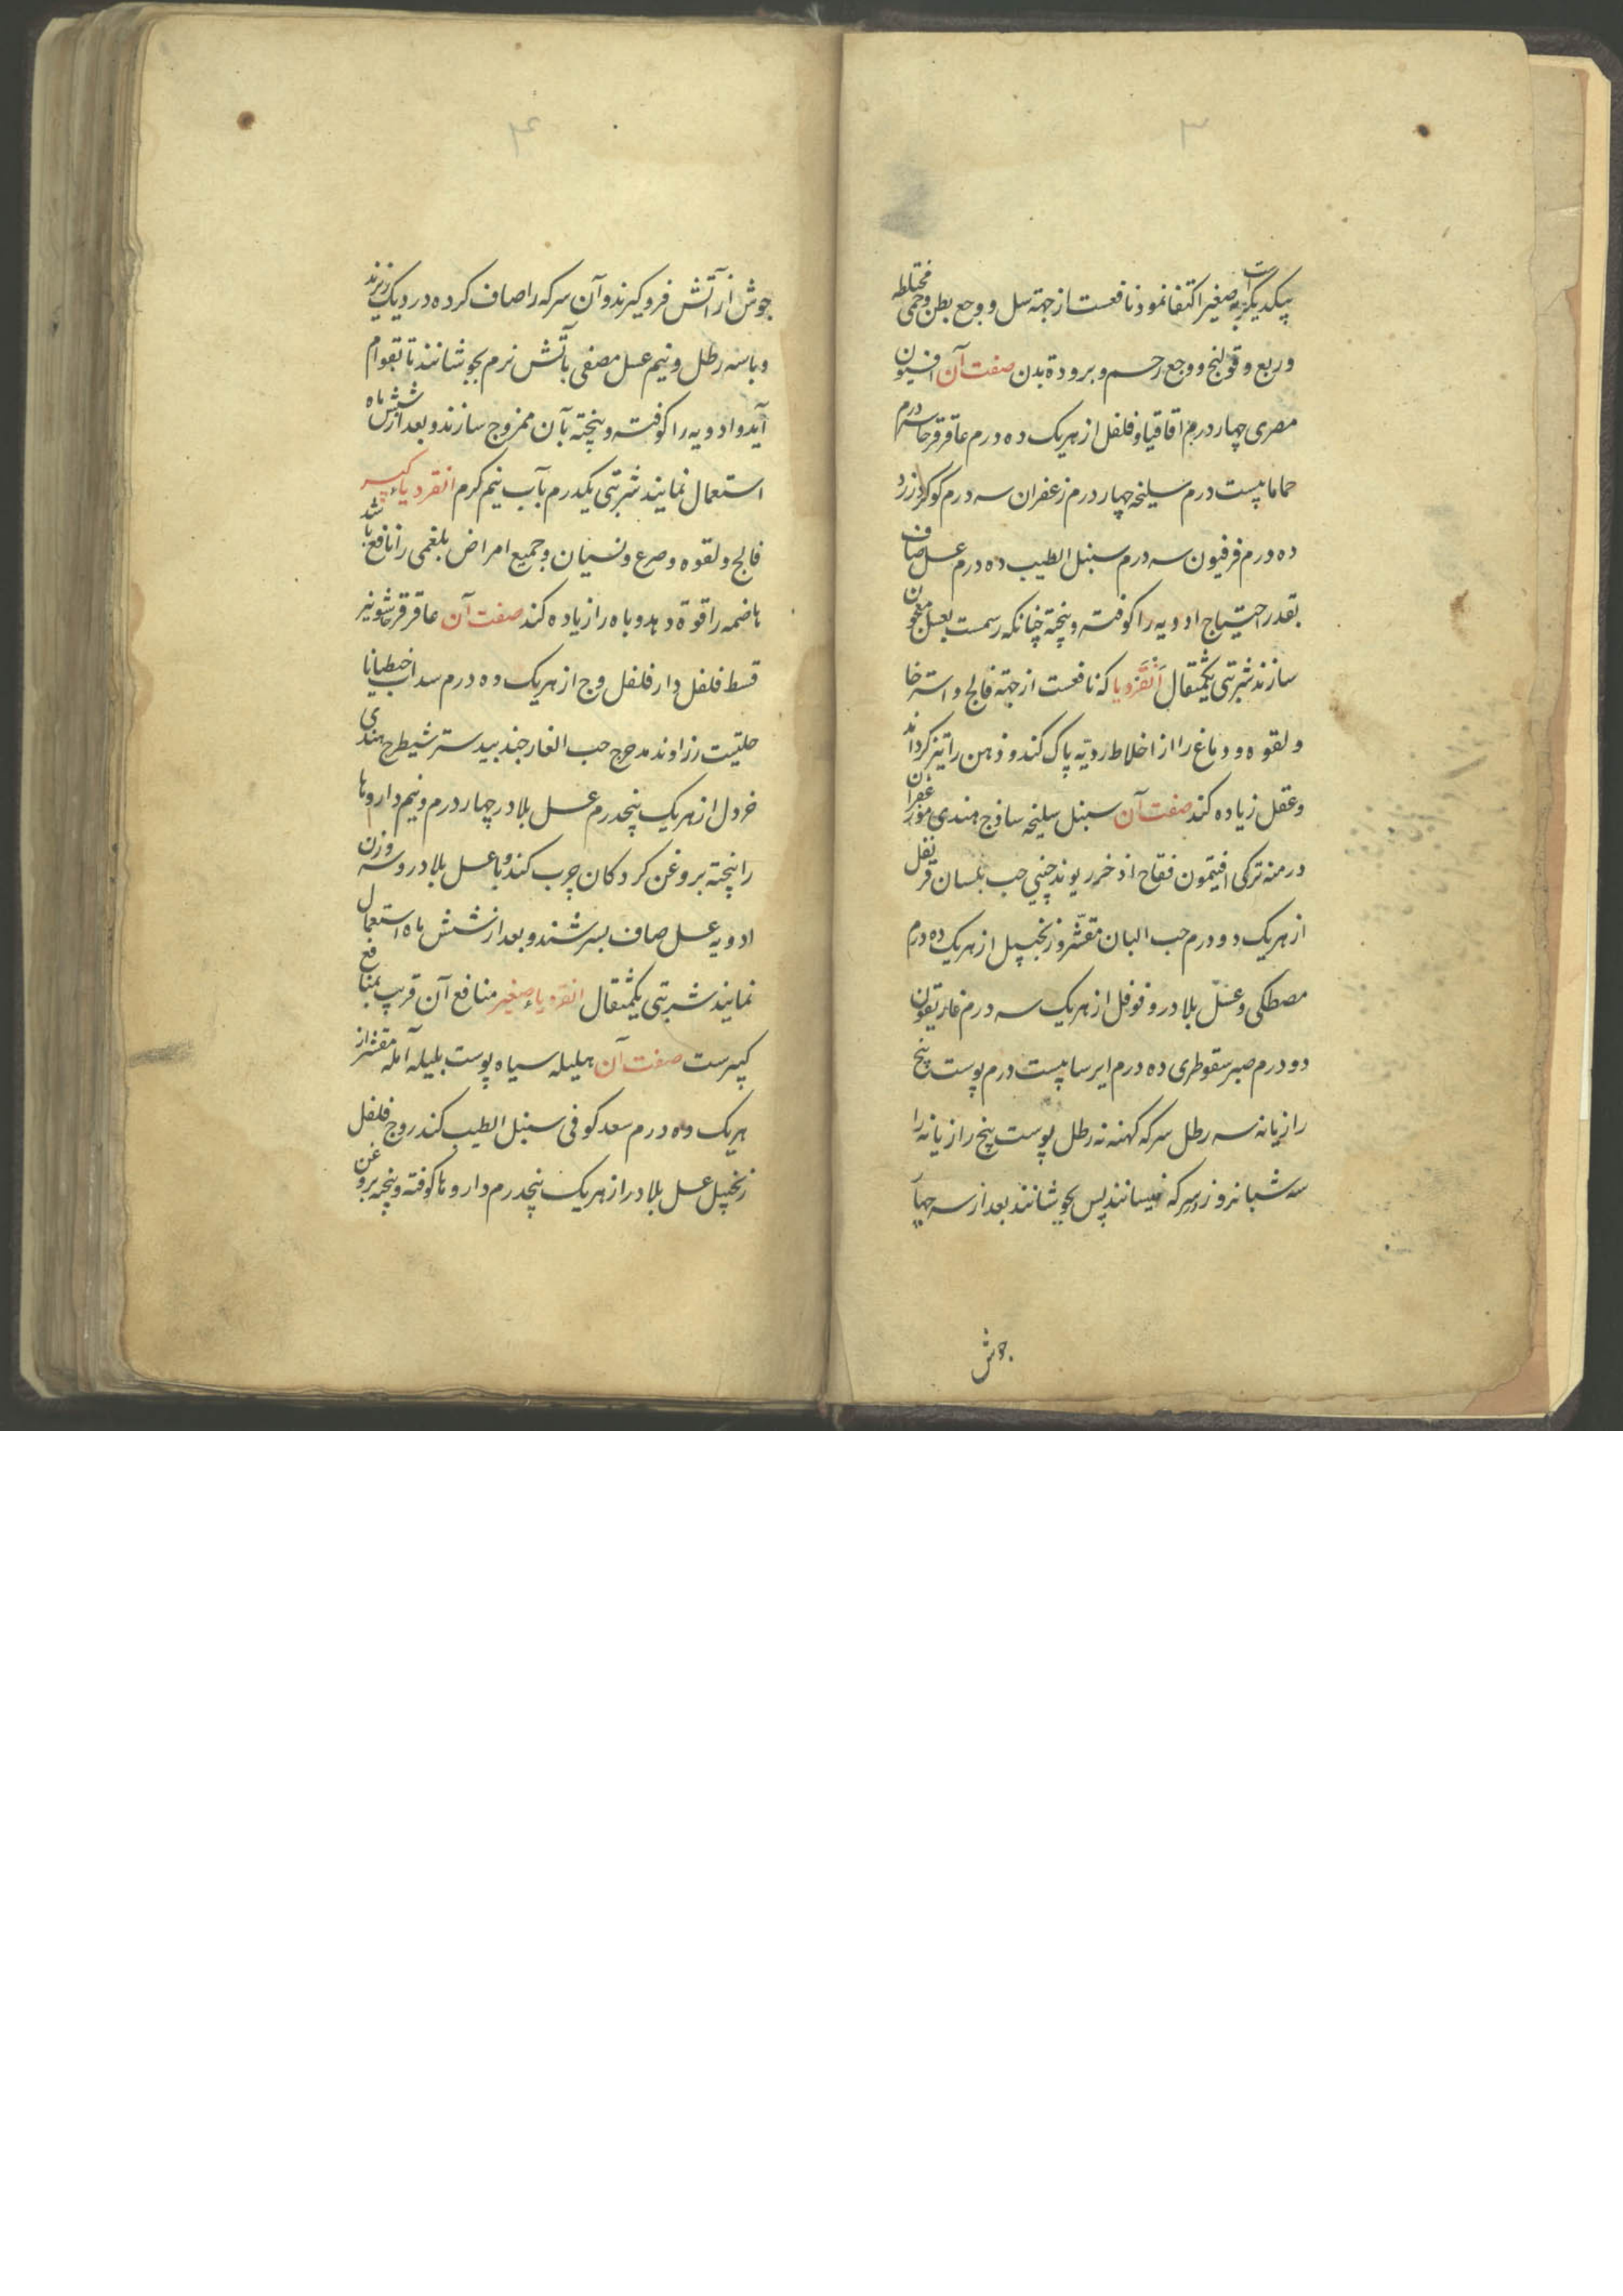 ۳
بیکدیگر به صغیر اکتفا نمود نافعست از جهته سل و وجع بطن و حمی مختلطه
و ربع و قولنج و وجع رحم و برودة بدن صفت آن افیون
مصری چهار درم اقاقیا و فلفل از هریک ده درم عاقرقرحا سه درم
حماما بیست درم سلیخه چهار درم زعفران سه درم کوکرد زرد
ده درم فرفیون سه درم سنبل الطیب ده درم عسل صاف
بقدر احتیاج ادویه را کوفته و پخته چنانکه رسمست بعسل معجون
سازند شربتی یکمثقال انقردیا که نافعست از جهته فالج و استرخا
و لقوه و دماغ را از اخلاط ردیّه پاک کند و ذهن را تیز کرداند
و عقل زیاده کند صفت آن سنبل سلیخه ساذج هندی مو زعفران
درمنه ترکی افتیمون فقاح اذخر ریوند چینی حب بلسان قرنفل
از هریک دو درم حب البان مقشّر و زنجبیل از هریک ده درم
مصطکی و عسل بلادر و فوفل از هریک سه درم غاریقون
دو درم صبر سقوطری ده درم ایرسا بیست درم پوست بیخ
رازیانه سه رطل سرکه کهنه نه رطل پوست بیخ رازیانه را
سه شبانروز در سرکه خیسانند پس بجوشانند بعد از سه چهار
جوش
۴
جوش از آتش فرو کیرند و آن سرکه را صاف کرده در دیک ریزند
و با سه رطل و نیم عسل مصفی بآتش نرم بجوشانند تا بقوام
آید و ادویه را کوفته و پخته بآن ممزوج سازند و بعد از شش ماه
استعمال نمایند شربتی یکدرم بآب نیم کرم انقردیاء کبیر
فالج و لقوه و صرع و نسیان و جمیع امراض بلغمی را نافع باشد
هاضمه را قوة دهد و باه را زیاده کند صفت آن عاقرقرحا شونیز
قسط فلفل دارفلفل وج از هریک ده درم سداب جنطیانا
حلتیت زراوند مدحرج حب الغار جندبیدستر شیطرج هندی
خردل از هریک پنجدرم عسل بلادر چهار درم و نیم داروها
را پخته بروغن کردکان چرب کند و با عسل بلادر و سه وزن
ادویه عسل صاف بسرشند و بعد از شش ماه استعمال
نمایند شربتی یکمثقال انقردیاء صغیر منافع آن قریب بمنافع
کبیرست صفت آن هلیله سیاه پوست بلیله آمله مقشر از
هریک ده درم سعد کوفی سنبل الطیب کندر وج فلفل
زنجبیل عسل بلادر از هریک پنجدرم داروها کوفته و پخته بروغن